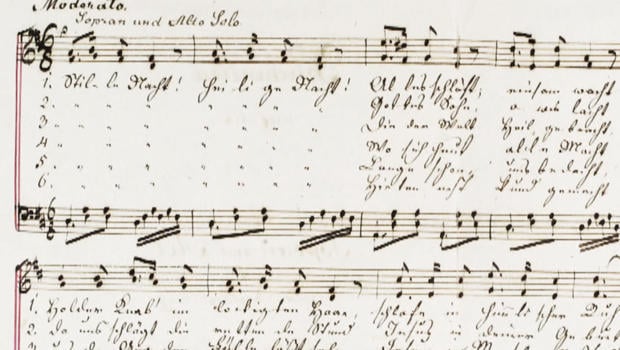 Moderato.
Sopran und Alto Solo.
1. Stil-le Nacht! Hei-li ge Nacht! Al les schläft; einsam wacht
2. " " " " " " Gottes Sohn! o wie lacht
3 " " " " " " Die der Welt Heil gebracht,
4 " " " " " " Wo sich heut alle Macht
5 " " " " " " Lange schon, uns bedacht,
6. " " " " " " Hirten erst kund gemacht
1. Holder Knab' im lockigten Haar, schlafe in himmlischer Ruh
2. da uns schlägt die rettende Stund Jesus in deiner Geburt